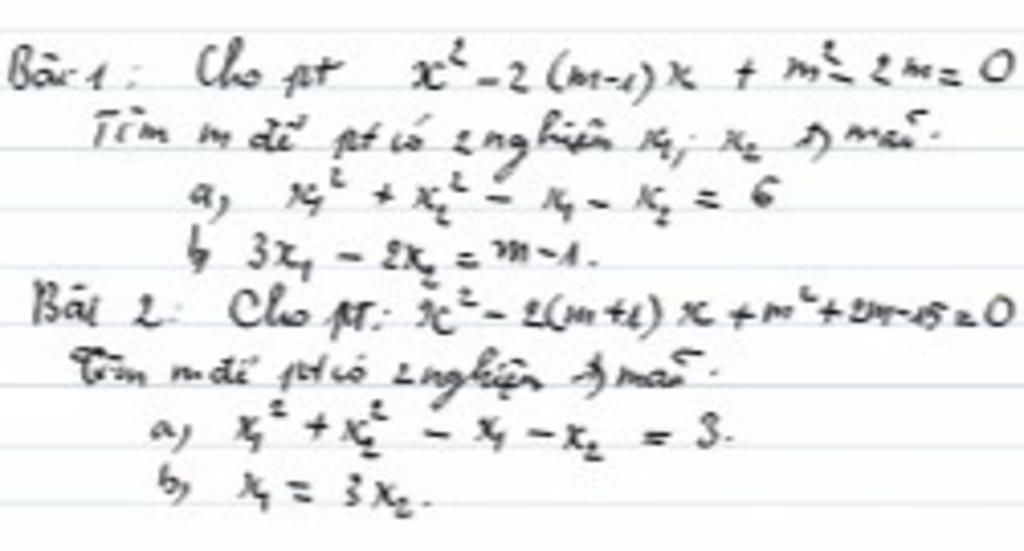 Bài 1: Cho pt x² - 2(m-1)x + m² - 2m = 0
Tìm m để pt có 2 nghiệm x₁; x₂ t) mãn.
a, x₁² + x₂² - x₁ - x₂ = 6
b, 3x₁ - 2x₂ = m - 1.
Bài 2: Cho pt: x² - 2(m+1)x + m² + 2m - 15 = 0
Tìm m để pt có 2 nghiệm t) mãn.
a, x₁² + x₂² - x₁ - x₂ = 3.
b, x₁ = 3x₂.